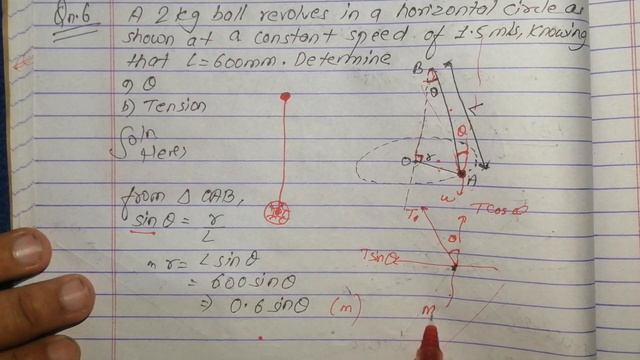 Qn.6 A 2 kg ball revolves in a horizontal circle as
shown at a constant speed of 1.5 m/s, Knowing
that L=600mm. Determine
a) θ
b) Tension
Soln
Here,
from Δ OAB,
sin θ = r/L
r = L sin θ
= 600 sin θ
⇒ 0.6 sin θ (m)
B
θ
L
θ
O r
A
w
T T cos θ
θ
T sin θ
m